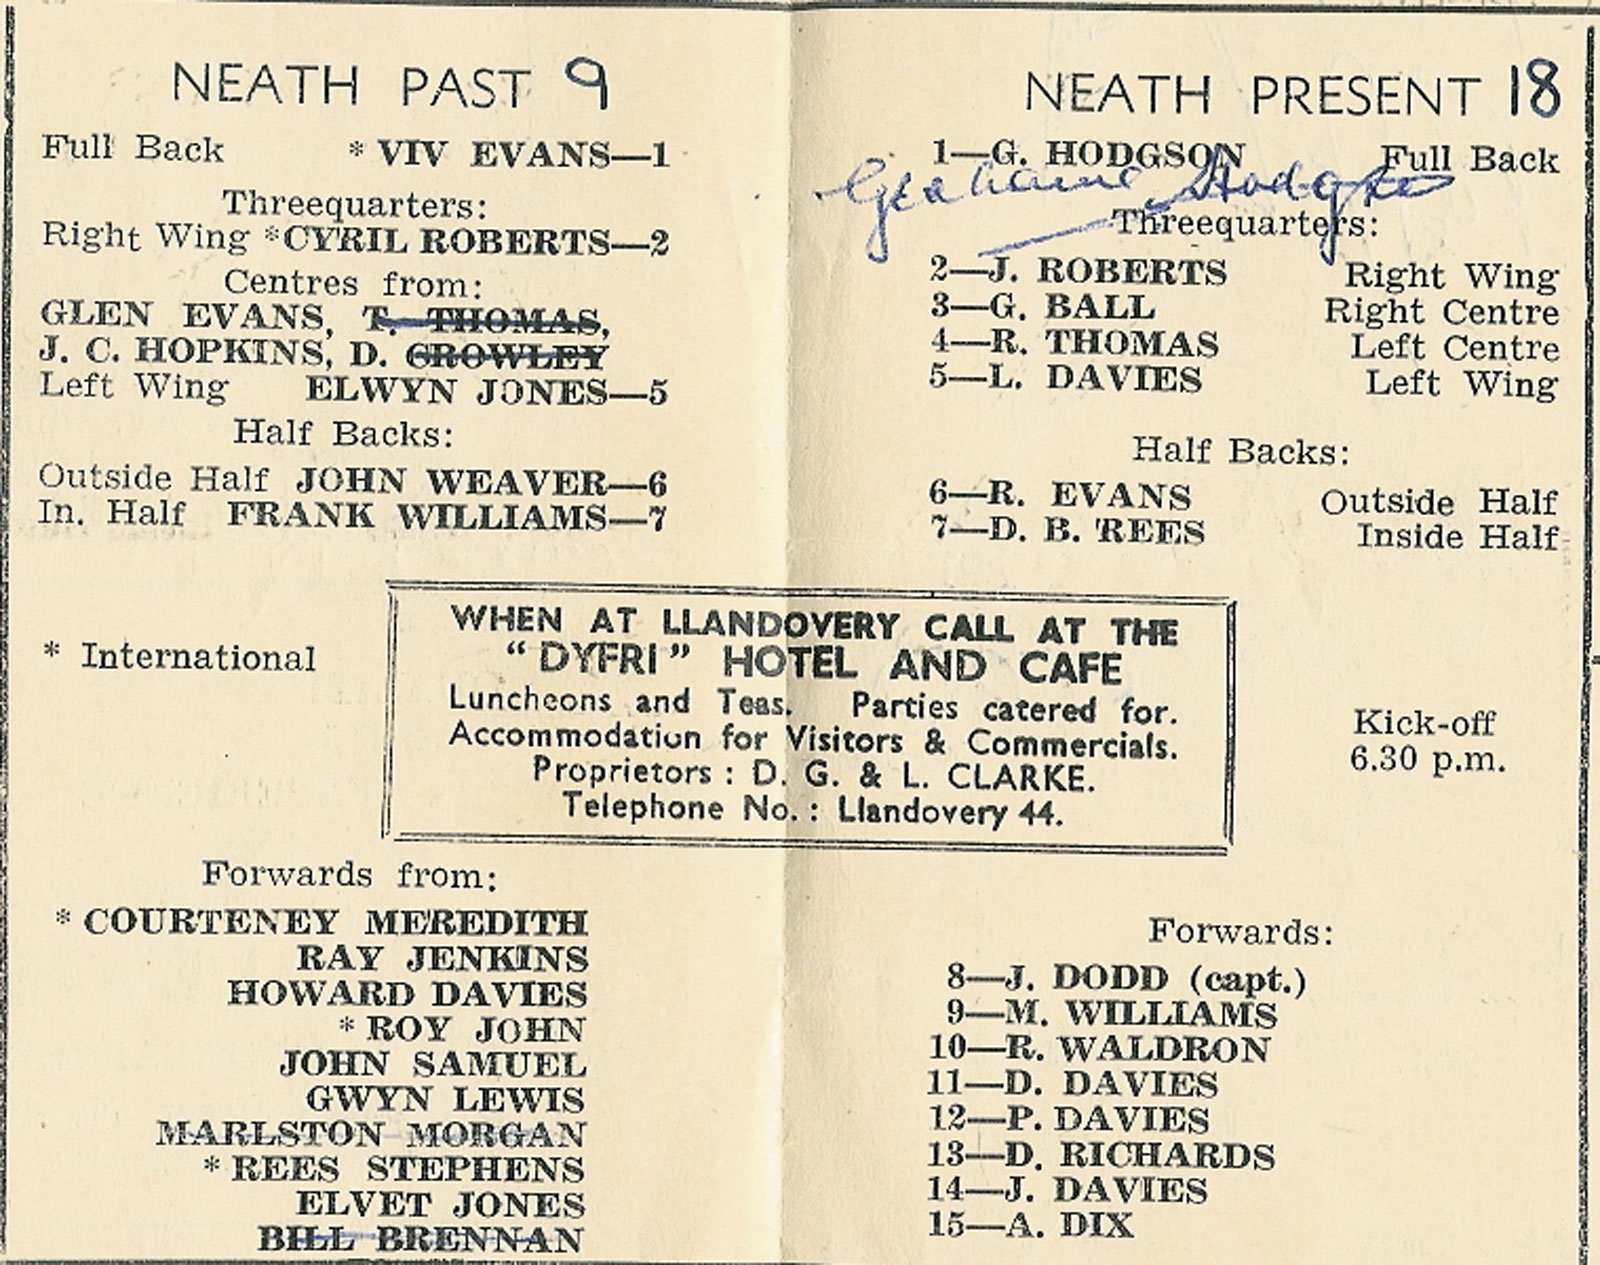 NEATH PAST 9
Full Back * VIV EVANS—1
Threequarters:
Right Wing *CYRIL ROBERTS—2
Centres from:
GLEN EVANS, T. THOMAS,
J. C. HOPKINS, D. CROWLEY
Left Wing ELWYN JONES—5
Half Backs:
Outside Half JOHN WEAVER—6
In. Half FRANK WILLIAMS—7
* International
NEATH PRESENT 18
1—G. HODGSON Full Back
Grahame Hodgson
Threequarters:
2—J. ROBERTS Right Wing
3—G. BALL Right Centre
4—R. THOMAS Left Centre
5—L. DAVIES Left Wing
Half Backs:
6—R. EVANS Outside Half
7—D. B. REES Inside Half
WHEN AT LLANDOVERY CALL AT THE
“DYFRI” HOTEL AND CAFE
Luncheons and Teas. Parties catered for.
Accommodation for Visitors & Commercials.
Proprietors : D. G. & L. CLARKE.
Telephone No. : Llandovery 44.
Kick-off
6.30 p.m.
Forwards from:
* COURTENEY MEREDITH
RAY JENKINS
HOWARD DAVIES
* ROY JOHN
JOHN SAMUEL
GWYN LEWIS
MARLSTON MORGAN
* REES STEPHENS
ELVET JONES
BILL BRENNAN
Forwards:
8—J. DODD (capt.)
9—M. WILLIAMS
10—R. WALDRON
11—D. DAVIES
12—P. DAVIES
13—D. RICHARDS
14—J. DAVIES
15—A. DIX